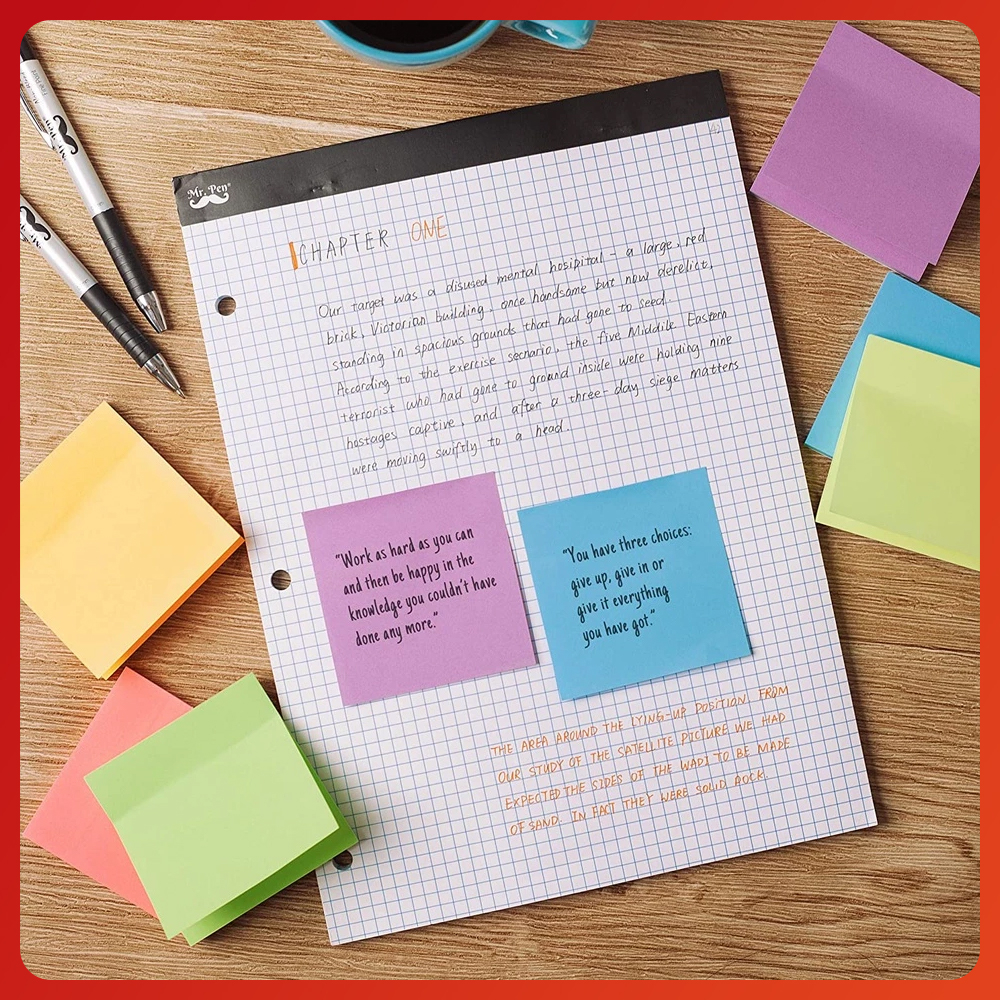 Mr. Pen
CHAPTER ONE
Our target was a disused mental hosipital - a large, red
brick, Victorian building, once handsome but now derelict,
standing in spacious grounds that had gone to seed.
According to the exercise secnario, the five Middle Eastern
terrorist who had gone to ground inside were holding nine
hostages captive, and after a three-day siege matters
were moving swiftly to a head.
"Work as hard as you can
and then be happy in the
knowledge you couldn't have
done any more."
"You have three choices:
give up, give in or
give it everything
you have got."
THE AREA AROUND THE LYING-UP POSITION. FROM
OUR STUDY OF THE SATELLITE PICTURE WE HAD
EXPECTED THE SIDES OF THE WADI TO BE MADE
OF SAND. IN FACT THEY WERE SOLID ROCK.